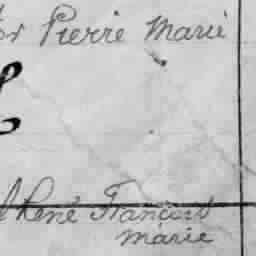 Pierre Marie
René François
marie